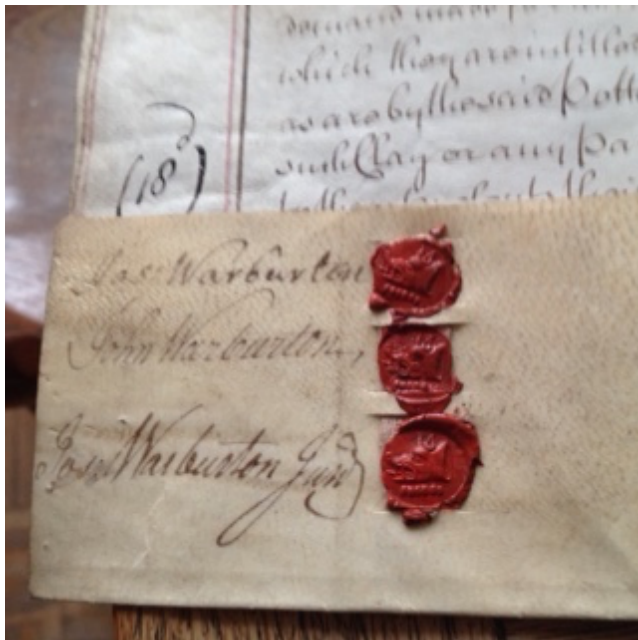 demand made
which they are intitled
as are by the said Pott
such Clay or any Pa
(18)
Jas: Warburton
John Warburton,
Jos: Warburton Junr